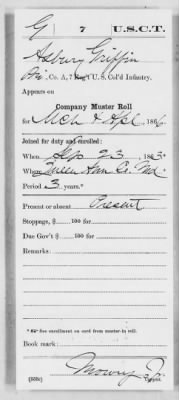 G | 7 | U.S.C.T.
Asbury Griffin
Co. A, 7 Reg't U. S. Col'd Infantry.
Appears on
Company Muster Roll
for Mch & Apl, 1864.
Joined for duty and enrolled:
When Sep 23, 1863*
Where Queen Ann Co. Md.
Period 3 years.*
Present or absent Present
Stoppage, $ 100 for
Due Gov't $ 100 for
Remarks:
*See enrollment on card from muster-in roll.
Book mark:
Mowry Jr.
(358c) Copyist.